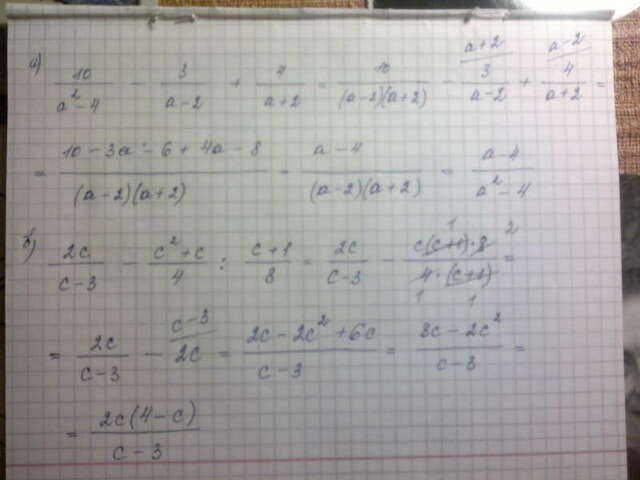 а) 10/(a²-4) - 3/(a-2) + 4/(a+2) = 10/((a-2)(a+2)) - 3/(a-2) (a+2 + 4/(a+2) (a-2 =
= (10-3a-6+4a-8)/((a-2)(a+2)) = (a-4)/((a-2)(a+2)) = (a-4)/(a²-4)
б) 2c/(c-3) - (c²+c)/4 : (c+1)/8 = 2c/(c-3) - (c(c+1)·8)/(4·(c+1)) 1 2 1 1 =
= 2c/(c-3) - 2c (c-3 = (2c-2c²+6c)/(c-3) = (8c-2c²)/(c-3) =
= 2c(4-c)/(c-3)